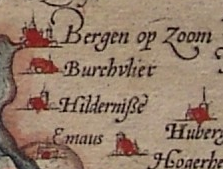 Bergen op Zoom
Burchvliet
Hilderniße
Emaus
Huberg
Hogerhe